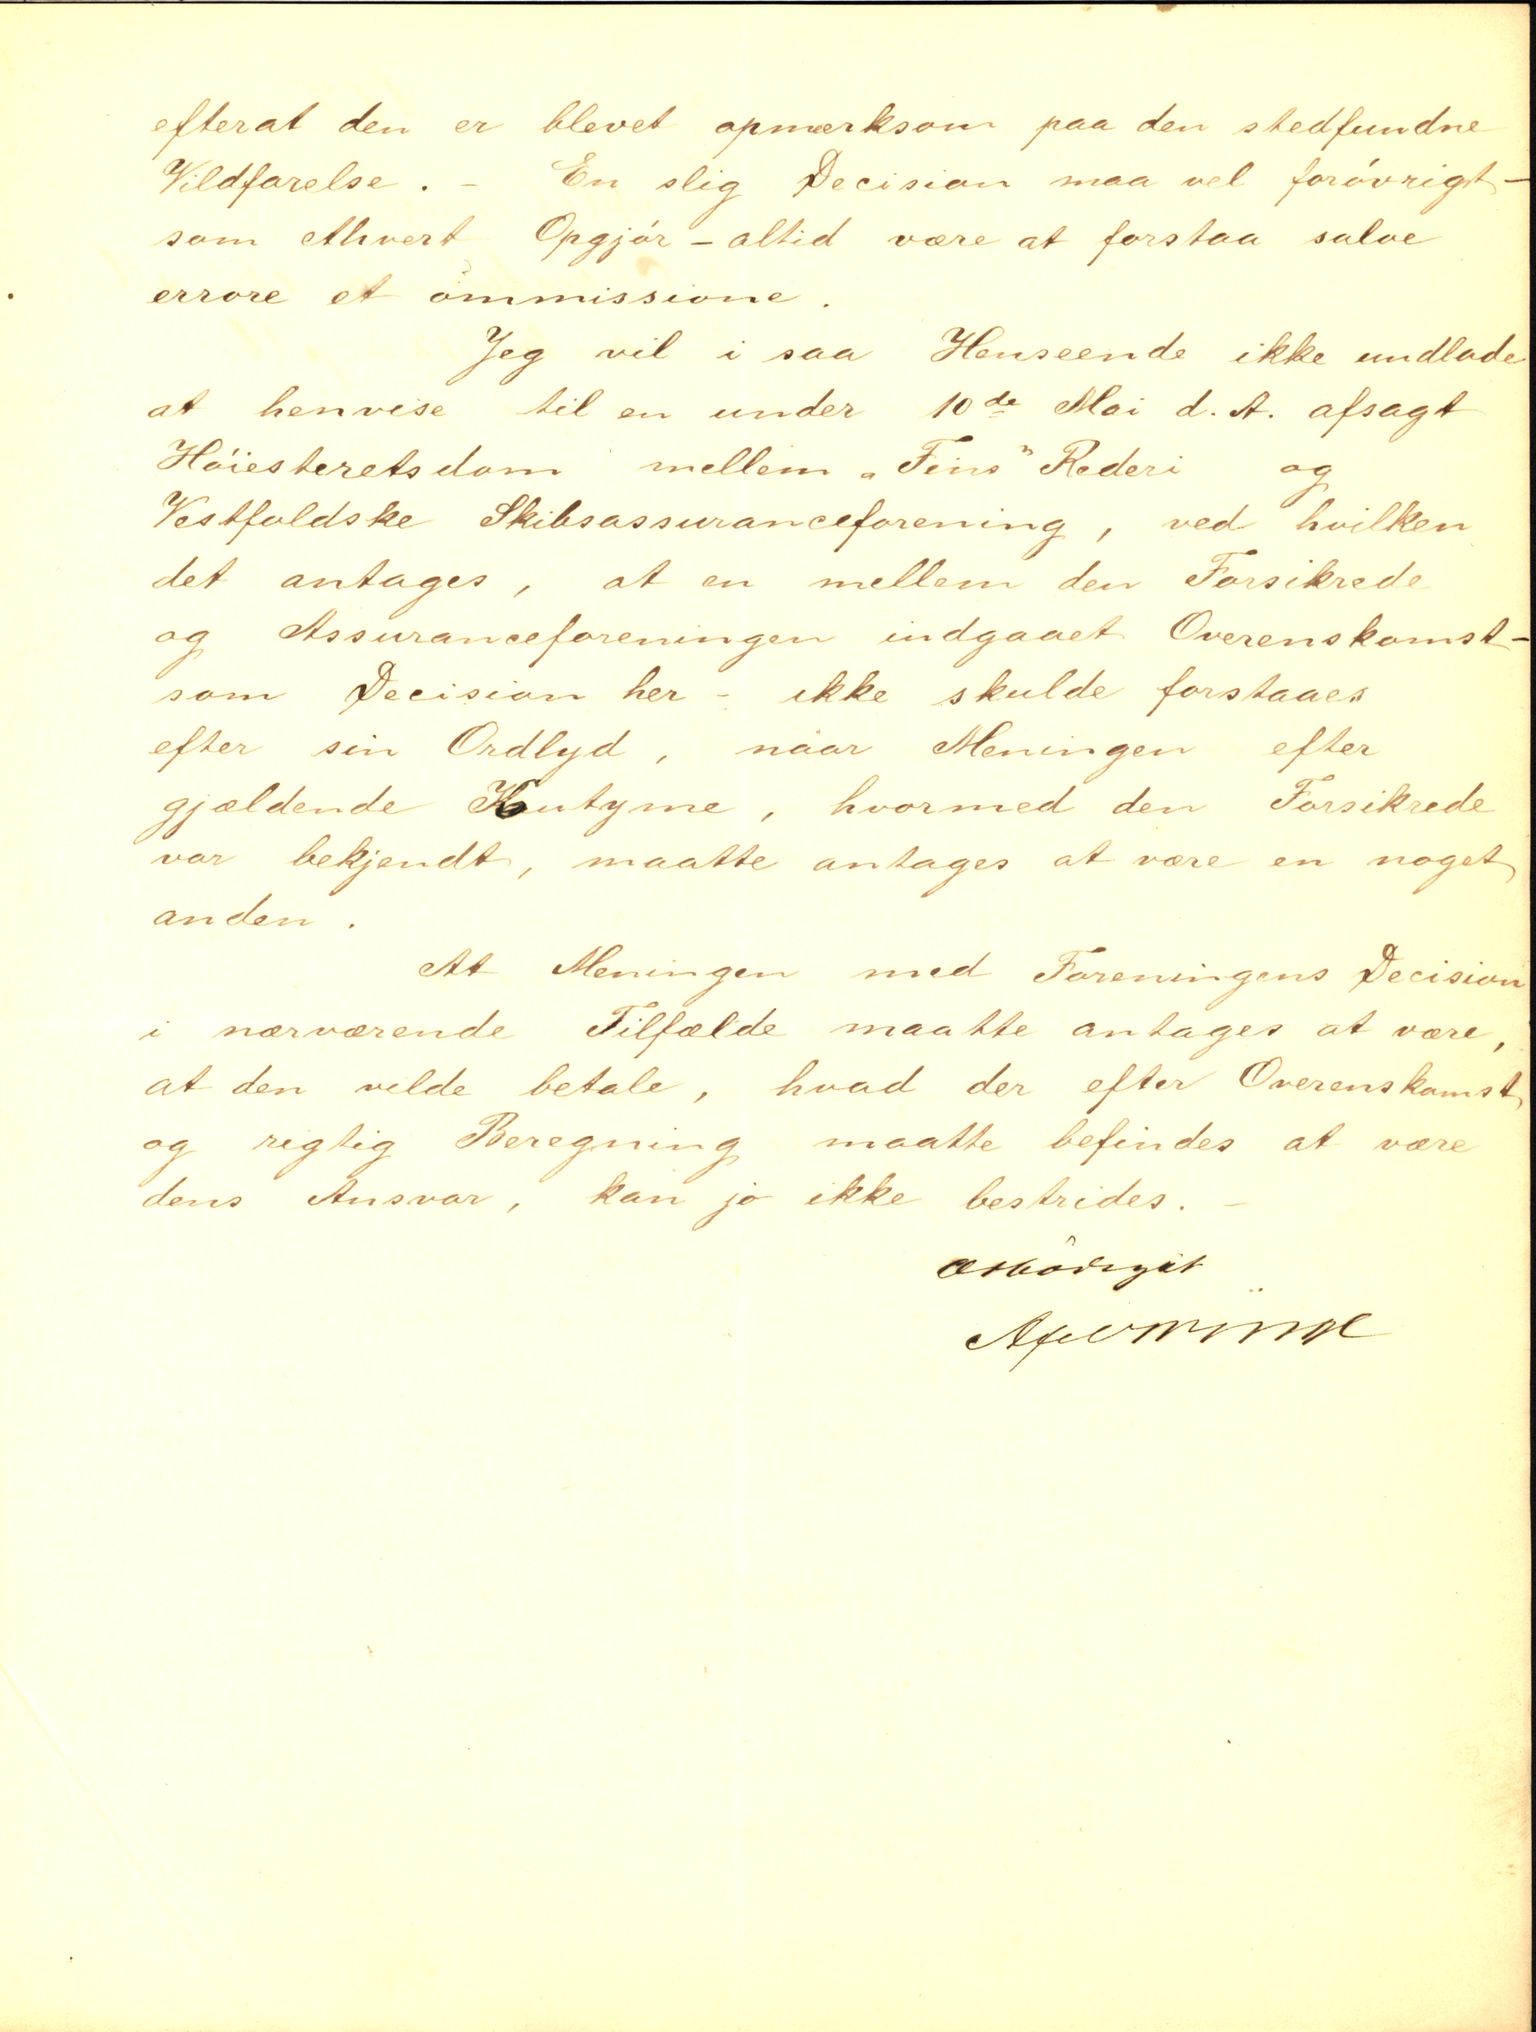 efterat den er blevet opmærksom paa den stedfundne
Vildfarelse. - En slig Decision maa vel forövrigt -
som ethvert Opgjör - altid være at forstaa salve
errore et ommissione.
Jeg vil i saa Henseende ikke undlade
at henvise til en under 10de Mai d. A. afsagt
Höiesteretsdom mellem „Fins" Rederi og
Vestfoldske Skibsassuranceforening, ved hvilken
det antages, at en mellem den Forsikrede
og Assuranceforeningen indgaaet Overenskomst -
som Decision her - ikke skulde forstaaes
efter sin Ordlyd, naar Meningen efter
gjældende Koutyme, hvormed den Forsikrede
var bekjendt, maatte antages at være en noget
anden.
At Meningen med Foreningens Decision
i nærværende Tilfælde maatte antages at være,
at den vilde betale, hvad der efter Overenskomst
og rigtig Beregning maatte befindes at være
dens Ansvar, kan jo ikke bestrides. -
ærbödigst